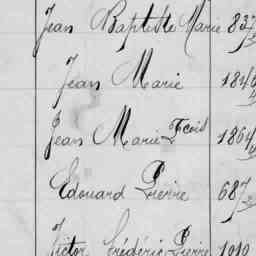 Jean Baptiste Marie 837
Jean Marie 184
Jean Marie 1864
Edouard Pierre 687
Victor Frédéric Pierre 1010